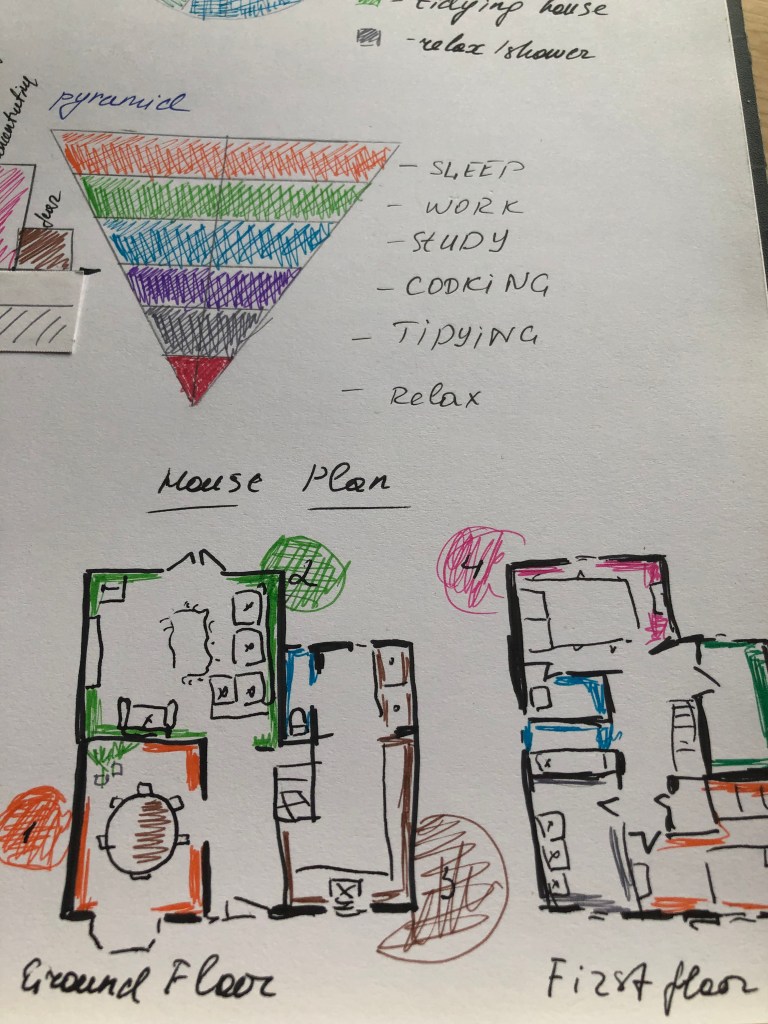 - tidying house
- relax/shower
pyramid
fear
- SLEEP
- WORK
- STUDY
- COOKING
- TIPYING
- Relax
House Plan
2
4
1
3
Ground Floor
First floor